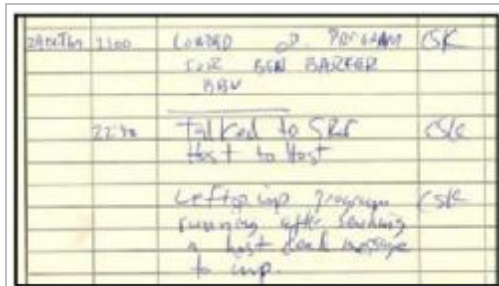 29 OCT 69 2100 LOADED OP. PROGRAM CSK
FOR BEN BARKER
BBV
22:30 Talked to SRI CSK
Host to Host
Left op. imp. program CSK
running after sending
a host dead message
to imp.